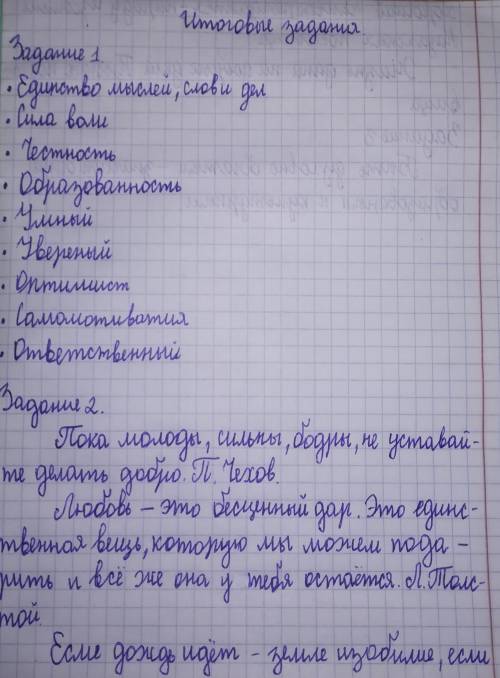 Итоговые задания.
Задание 1
• Единство мыслей, слов и дел
• Сила воли
• Честность
• Образованность
• Умный
• Увереный
• Оптимист
• Самомотиватия
• Ответственный
Задание 2.
Пока молоды, сильны, бодры, не уставай-
те делать добро. П. Чехов.
Любовь – это бесценный дар. Это единс-
твенная вещь, которую мы можем пода-
рить и всё же она у тебя остаётся. Л. Толс-
той.
Если дождь идёт – земле изобилие, если